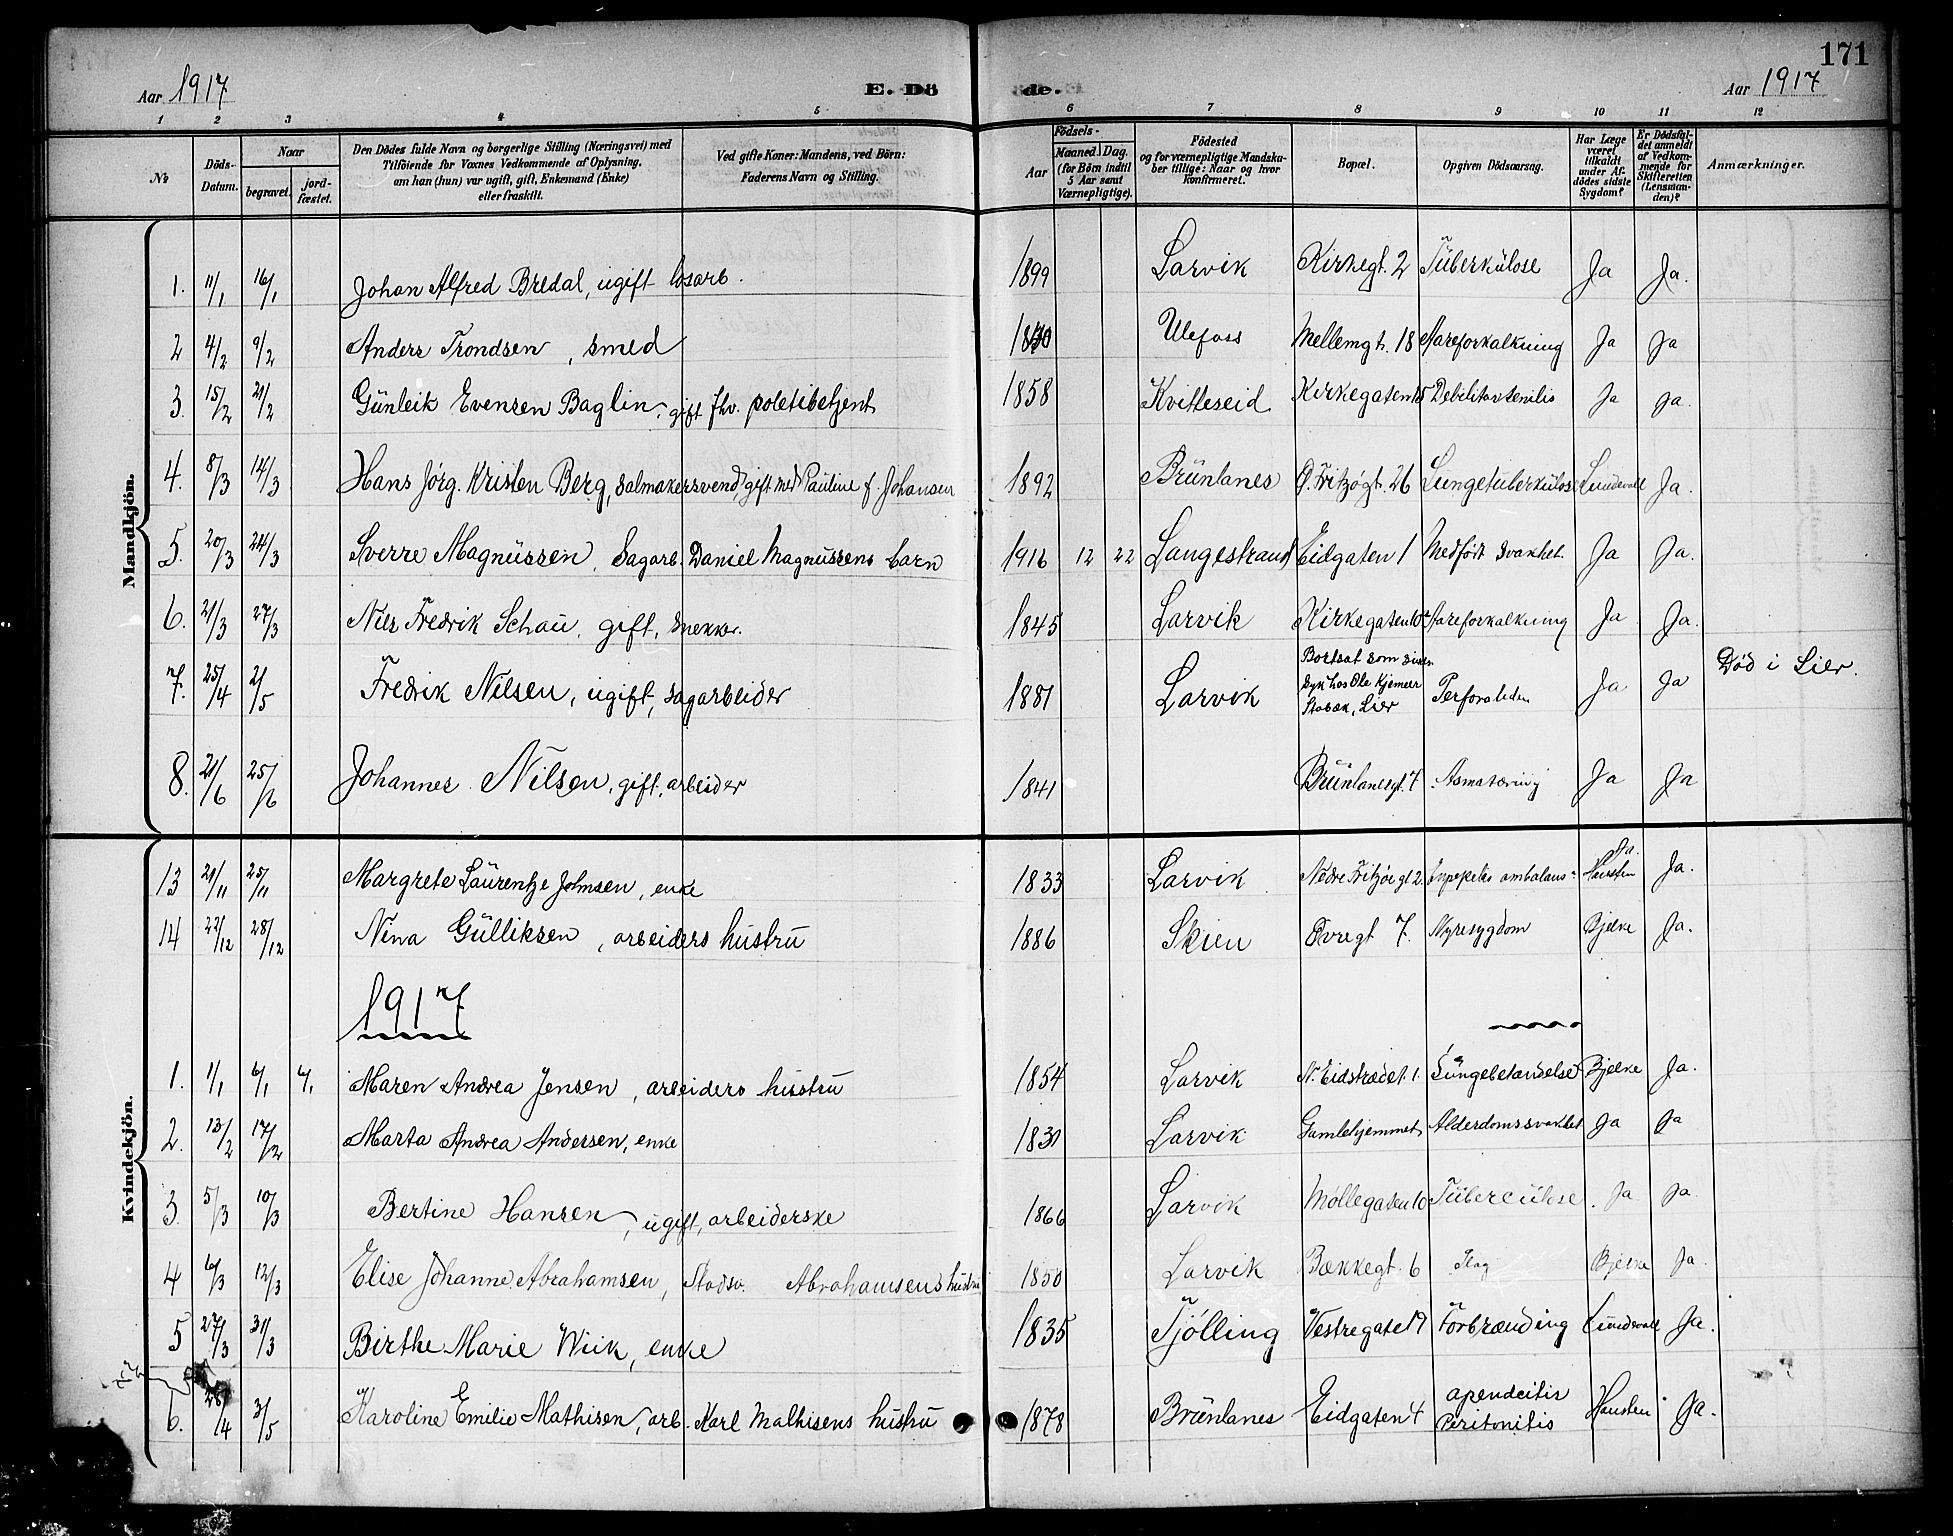 171
Aar 1917
E. Dö
de.
Aar 1917
1 2 3 4 5 6 7 8 9 10 11 12
№
Döds-Datum.
Naar
begravet. jord-fæstet.
Den Dödes fulde Navn og borgerlige Stilling (Næringsvei) med
Tilföiende for Voxnes Vedkommende af Oplysning,
om han (hun) var ugift, gift, Enkemand (Enke)
eller fraskilt.
Ved gifte Koner: Mandens, ved Börn:
Faderens Navn og Stilling.
Födsels-
Aar
Maaned. Dag.
(for Börn indtil
5 Aar samt
Værnepligtige).
Födested
og for værnepligtige Mandska-
ber tillige: Naar og hvor
konfirmeret.
Bopæl.
Opgiven Dödsaarsag.
Har Læge
været
tilkaldt
under Af-
dödes sidste
Sygdom?
Er Dödsfal-
det anmeldt
af Vedkom-
mende for
Skifteretten
(Lensman-
den)?
Anmærkninger.
Mandkjön.
1. 11/1 16/1 Johan Alfred Bredal, ugift løsarb. 1899 Larvik Kirkegt. 2 Tüberkülose Ja Ja.
2 4/2 9/2 Anders Trondsen, smed Ulefoss Mellemgt. 18 Aareforkalkning Ja Ja
3. 15/2 21/2 Günleik Evensen Baglin, gift fhv. poletibetjent 1858 Kvitteseid Kirkegaten Ja Ja.
4. 8/3 14/3 Hans Jørg. Kristen Berg, salmakersvend, gift med Pauline f. Johansen 1892 Brünlanes Ø. Fritzøgt. 26 Lüngetüberkülose Lündevall Ja.
5. 20/3 24/3 Sverre Magnüssen, Sagarb. Daniel Magnussens barn 1916 12 22 Langestrand Eidgaten 1 Medført svakhet. Ja Ja.
6. 21/3 27/3 Nils Fredrik Schaü, gift, snekker. 1845 Larvik Kirkegaten Aareforkalkning Ja Ja.
7. 25/4 2/5 Fredrik Nilsen, ugift, sagarbeider 1881 Larvik Bortsat som sinds-
syk hos Ole Kjemeer
Stabæk, Lier Ja Ja Død i Lier.
8. 21/6 25/6 Johannes Nilsen, gift, arbeider 1841 Brünlanesgt. 7 Ja Ja
Kvindekjön.
13 21/11 25/11 Margrete Läurentze Johnsen, enke 1833 Larvik Nedre Fritzøe gt 2. Ja. Hansten Ja.
14 22/12 28/12 Nina Gülliksen, arbeiders hustru 1886 Skien Øvregt 7. Nyresygdom Bjelke Ja.
1917
1. 1/1 Maren Andrea Jensen, arbeiders hustru 1854 Larvik N. Eidstrædet. 1. Lüngebetændelse Bjelke Ja.
2. 13/2 17/2 Marta Andrea Andersen, enke 1831 Larvik Gamlehjemmet Alderdomssvakhet Ja Ja
3. 5/3 10/3 Bertine Hansen, ugift, arbeiderske 1866 Larvik Møllegaten 10 Tüberculose Ja Ja.
4 6/3 12/3 Elise Johanne Abrahamsen, Abrahamsens hustru 1850 Larvik Bækkegt. 6 Slag Bjelke Ja.
5 27/3 31/3 Birthe Marie Wiik, enke 1835 Tjølling Vestregate 17 Forbrænding Lündevall Ja.
6. 28/4 3/5 Karoline Emilie Mathisen, arb. Karl Mathisens hustru 1878 Brünlanes Eidgaten 4 apendcitis
Peritonitis Hansten Ja.